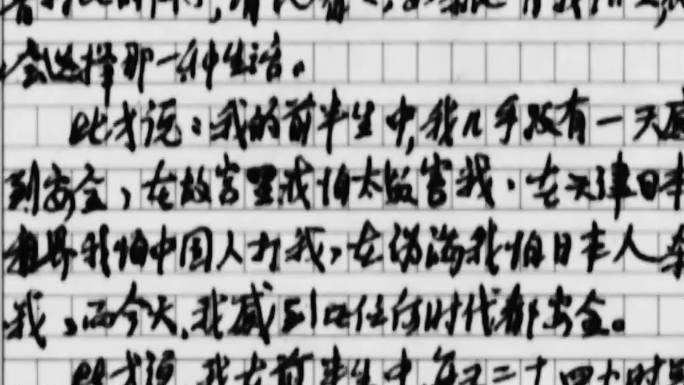 会选择那一种生活。
比方说：我的前半生中,我几乎没有一天感
到安全，在故宫里我怕太监害我，在天津日本
租界我怕中国人打我，在伪满我怕日本人杀
我，而今天,我感到比任何时代都安全。
比方说 我在前半生中 每天二十四小时